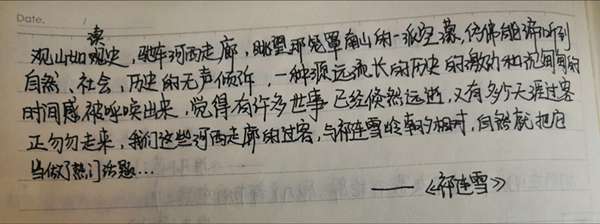 Date. /
读
观山如观史，驰车河西走廊，眺望那笼罩南山的一派空蒙，仿佛能谛听到
自然、社会、历史的无声倾诉，一种源远流长的历史的激动和沉甸甸的
时间感被呼唤出来，觉得有许多世事已经倏然远逝，又有多少天涯过客
正匆匆走来，我们这些河西走廊的过客，与祁连雪岭朝夕相对，自然就把它
当做了热门话题...
——《祁连雪》